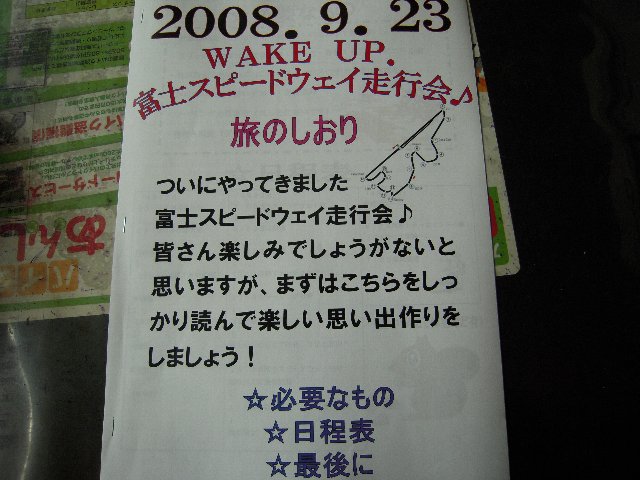 2008. 9. 23
WAKE UP.
富士スピードウェイ走行会♪
旅のしおり
ついにやってきました
富士スピードウェイ走行会♪
皆さん楽しみでしょうがないと
思いますが、まずはこちらをしっ
かり読んで楽しい思い出作りを
しましょう！
☆必要なもの
☆日程表
☆最後に